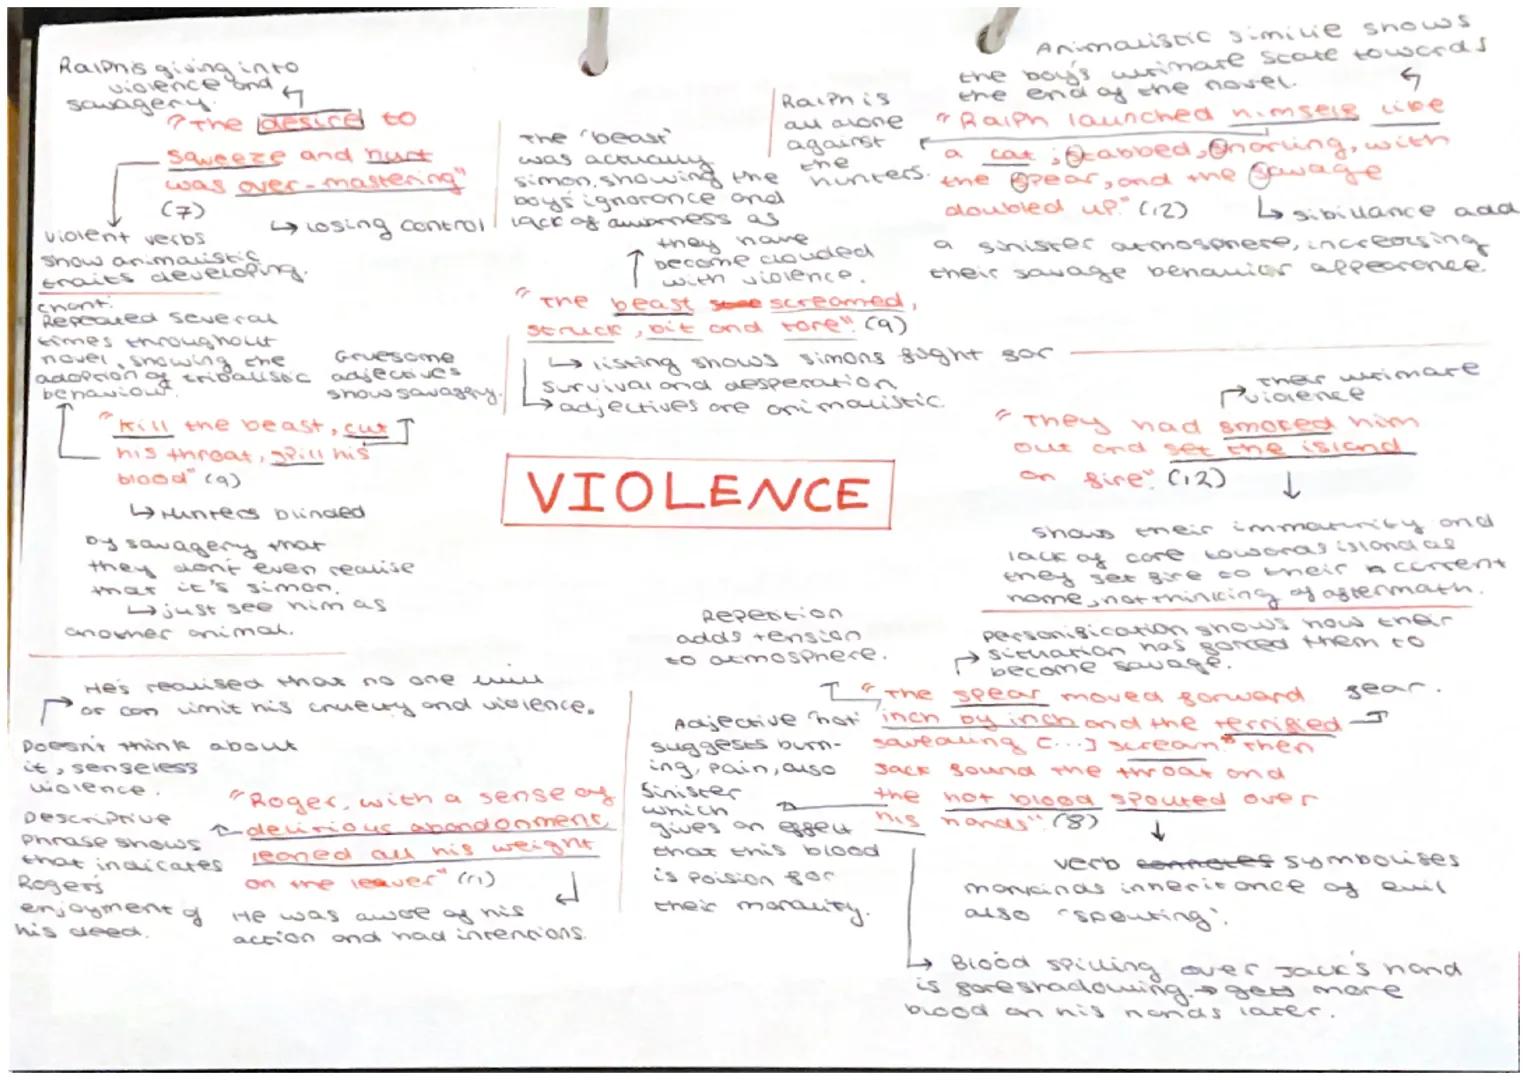 Ralph's giving into
violence and
savagery.
"The desire to
squeeze and hurt
was over-mastering"
(7)
↳ losing control
violent verbs
show animalistic
traits developing.
chant:
Repeated several
times throughout
novel, showing the
adoption of tribalistic
behaviour.
Gruesome
adjectives
show savagery.
"Kill the beast, cut
his throat, spill his
blood" (9)
↳ Hunters blinded
by savagery that
they don't even realise
that it's simon.
↳ just see him as
another animal.
The 'beast'
was actually
simon, showing the
boys ignorance and
lack of awarness as
they have
become clouded
with violence.
"The beast screamed,
struck, bit and tore". (9)
↳ listing shows simons fight for
survival and desperation
→ adjectives are animalistic
Ralph is
all alone
against
the
hunters.
Animalistic similie shows
the boy's ultimate state towards
the end of the novel.
"Ralph launched himself like
a cat; stabbed, snarling, with
the spear, and the savage
doubled up." (12)
↳ sibillance add
a sinister atmosphere, increasing
their savage behavior appearence.
VIOLENCE
Their ultimate
violence
"They had smoked him
out and set the island
on fire". (12)
shows their immaturity and
lack of care towards island as
they set fire to their current
home, not thinking of aftermath.
He's realised that no one will
or can limit his cruelty and violence.
Doesn't think about
it, senseless
violence.
Descriptive
phrase shows
that indicates
Roger's
enjoyment of
his deed.
"Roger, with a sense of
delirious abandonment,
leaned all his weight
on the leaver" (11)
He was awae of his
action and had intentions.
Repetition
adds tension
to atmosphere.
personification shows how their
situation has forced them to
become savage.
"The spear moved forward
inch by inch and the terrified
squealing [...] scream." Then
Jack found the throat and
the hot blood spouted over
his hands". (8)
fear.
Adjective 'hot'
suggests burn-
ing, pain, also
sinister
which
gives an effect
that this blood
is poision for
their morality.
verb connotes symbolises
mankinds inheritance of evil
also 'spouting'.
↳ Blood spilling over Jack's hand
is foreshadowing. → gets more
blood on his hands later.